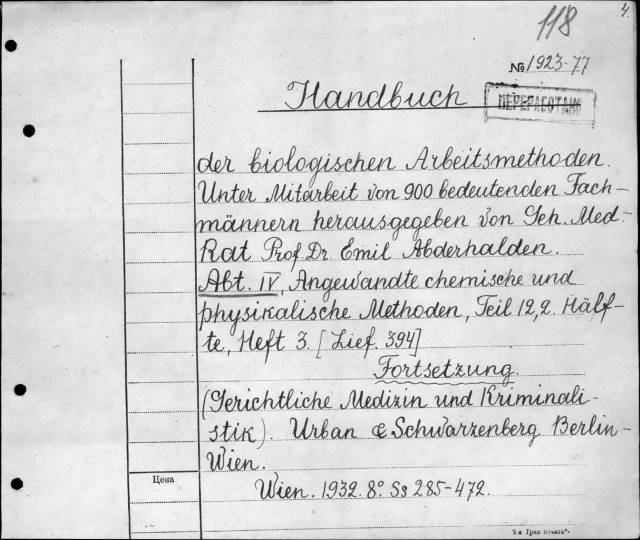 4.
118
№ 1923-77
Handbuch
ПЕРЕРАБОТАНО
der biologischen Arbeitsmethoden.
Unter Mitarbeit von 900 bedeutenden Fach-
männern herausgegeben von Geh. Med-
Rat Prof. Dr. Emil Abderhalden.
Abt. IV, Angewandte chemische und
physikalische Methoden, Teil 12, 2. Hälf-
te, Heft 3. [Lief. 394]
Fortsetzung.
(Gerichtliche Medizin und Kriminali-
stik). Urban & Schwarzenberg Berlin-
Wien.
Цена
Wien. 1932. 8° Ss 285-472.